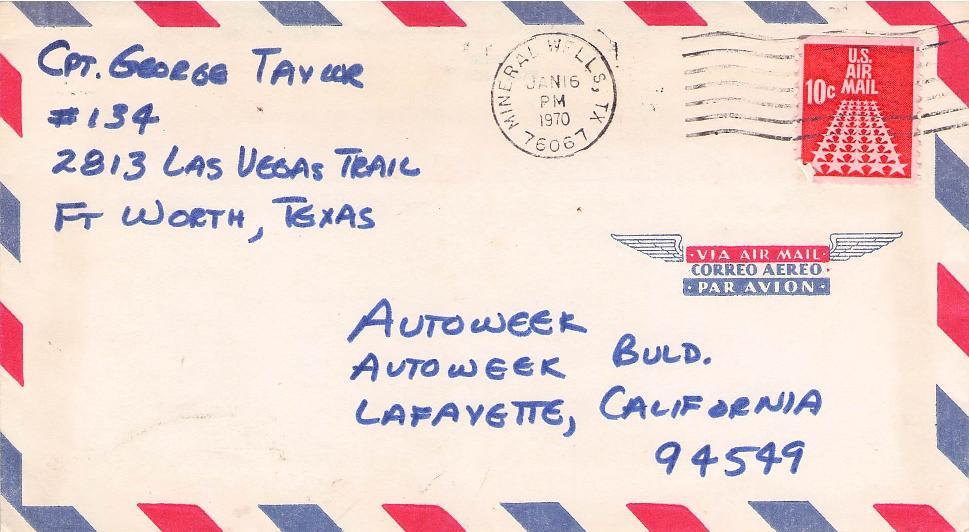 CPT. GEORGE TAYLOR
#134
2813 LAS VEGAS TRAIL
FT WORTH, TEXAS
MINERAL WELLS, TX
JAN 16
PM
1970
76067
U.S.
AIR
MAIL
10c
·VIA AIR MAIL·
CORREO AEREO·
·PAR AVION·
AUTOWEEK
AUTOWEEK BULD.
LAFAYETTE, CALIFORNIA
94549